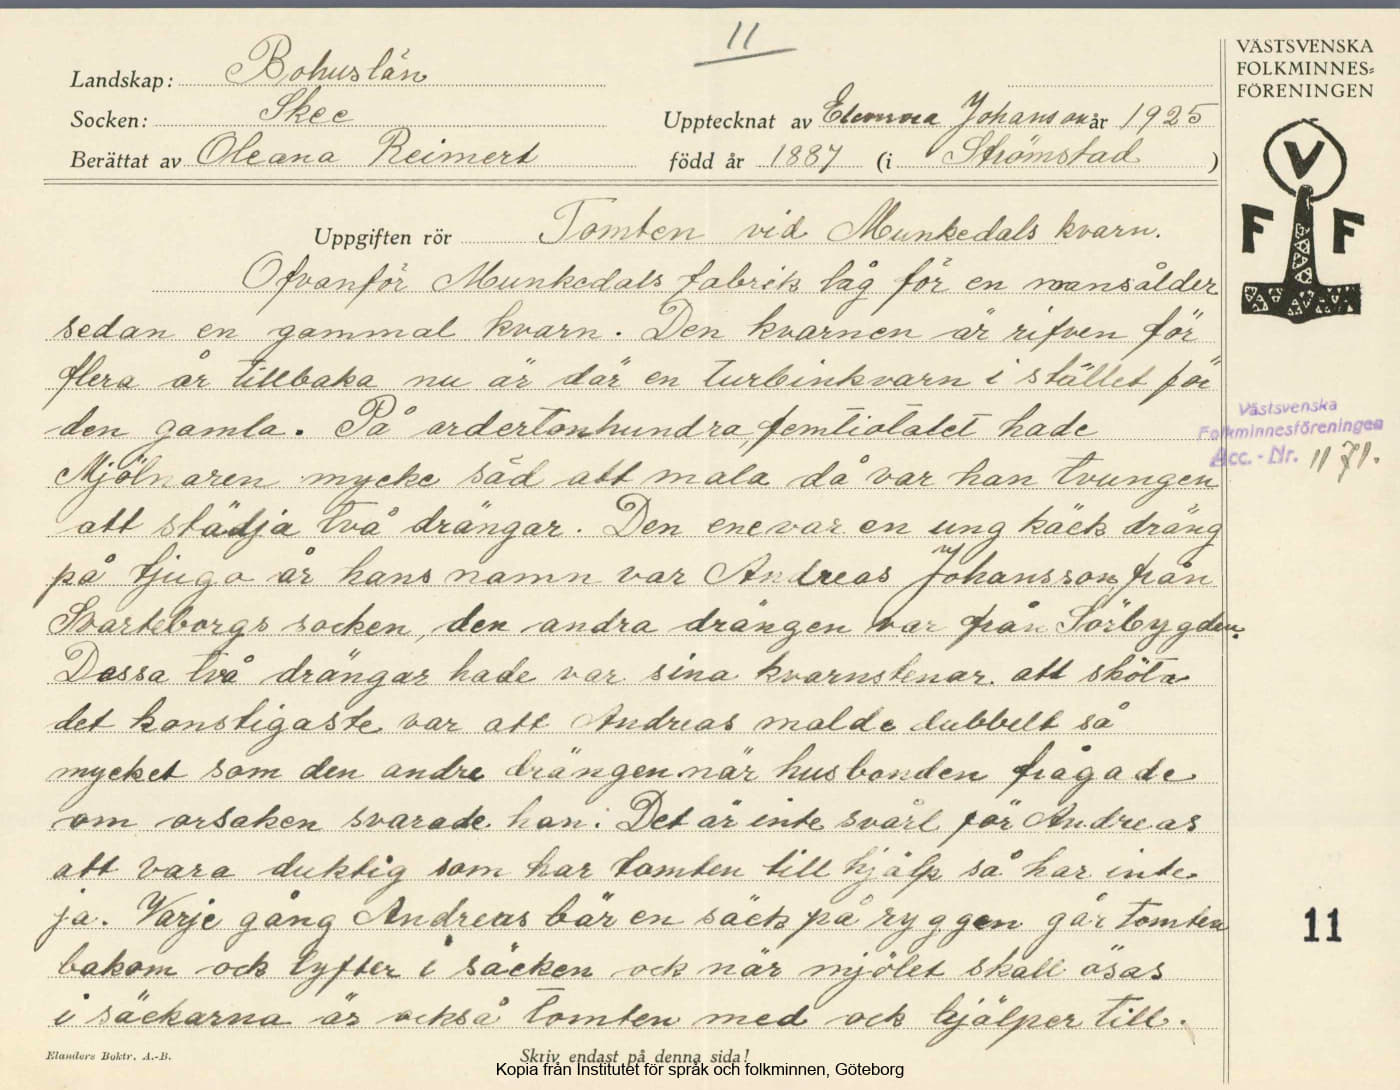 11
VÄSTSVENSKA
FOLKMINNES=
FÖRENINGEN
V
F F
Landskap: Bohuslän
Socken: Skee
Upptecknat av Johanson år 1925
Berättat av Oleana Reimert
född år 1887 (i Strömstad )
Uppgiften rör Tomten vid Munkedals kvarn.
Ofvanför Munkedals fabrik låg för en mansålder
sedan en gammal kvarn. Den kvarnen är rifven för
flera år tillbaka nu är där en turbinkvarn i stället för
den gamla. På ardertonhundra femtiotalet hade
Mjölnaren mycke säd att mala då var han tvungen
att städja två drängar. Den ene var en ung käck dräng
på tjugo år hans namn var Andreas Johansson från
Svarteborgs socken, den andra drängen var från Sörbygden.
Dessa två drängar hade var sina kvarnstenar att sköta
det konstigaste var att Andreas malde dubbelt så
mycket som den andre drängen när husbonden frågade
om orsaken svarade han: Det är inte svårt för Andreas
att vara duktig som har tomten till hjälp så har inte
ja. Varje gång Andreas bär en säck på ryggen går tomten
bakom ock lyfter i säcken ock när mjölet skall ösas
i säckarna är också tomten med ock hjälper till.
Västsvenska
Folkminnesföreningen
Acc. - Nr. 1171.
11
Elanders Boktr. A.-B.
Skriv endast på denna sida!
Kopia från Institutet för språk och folkminnen, Göteborg